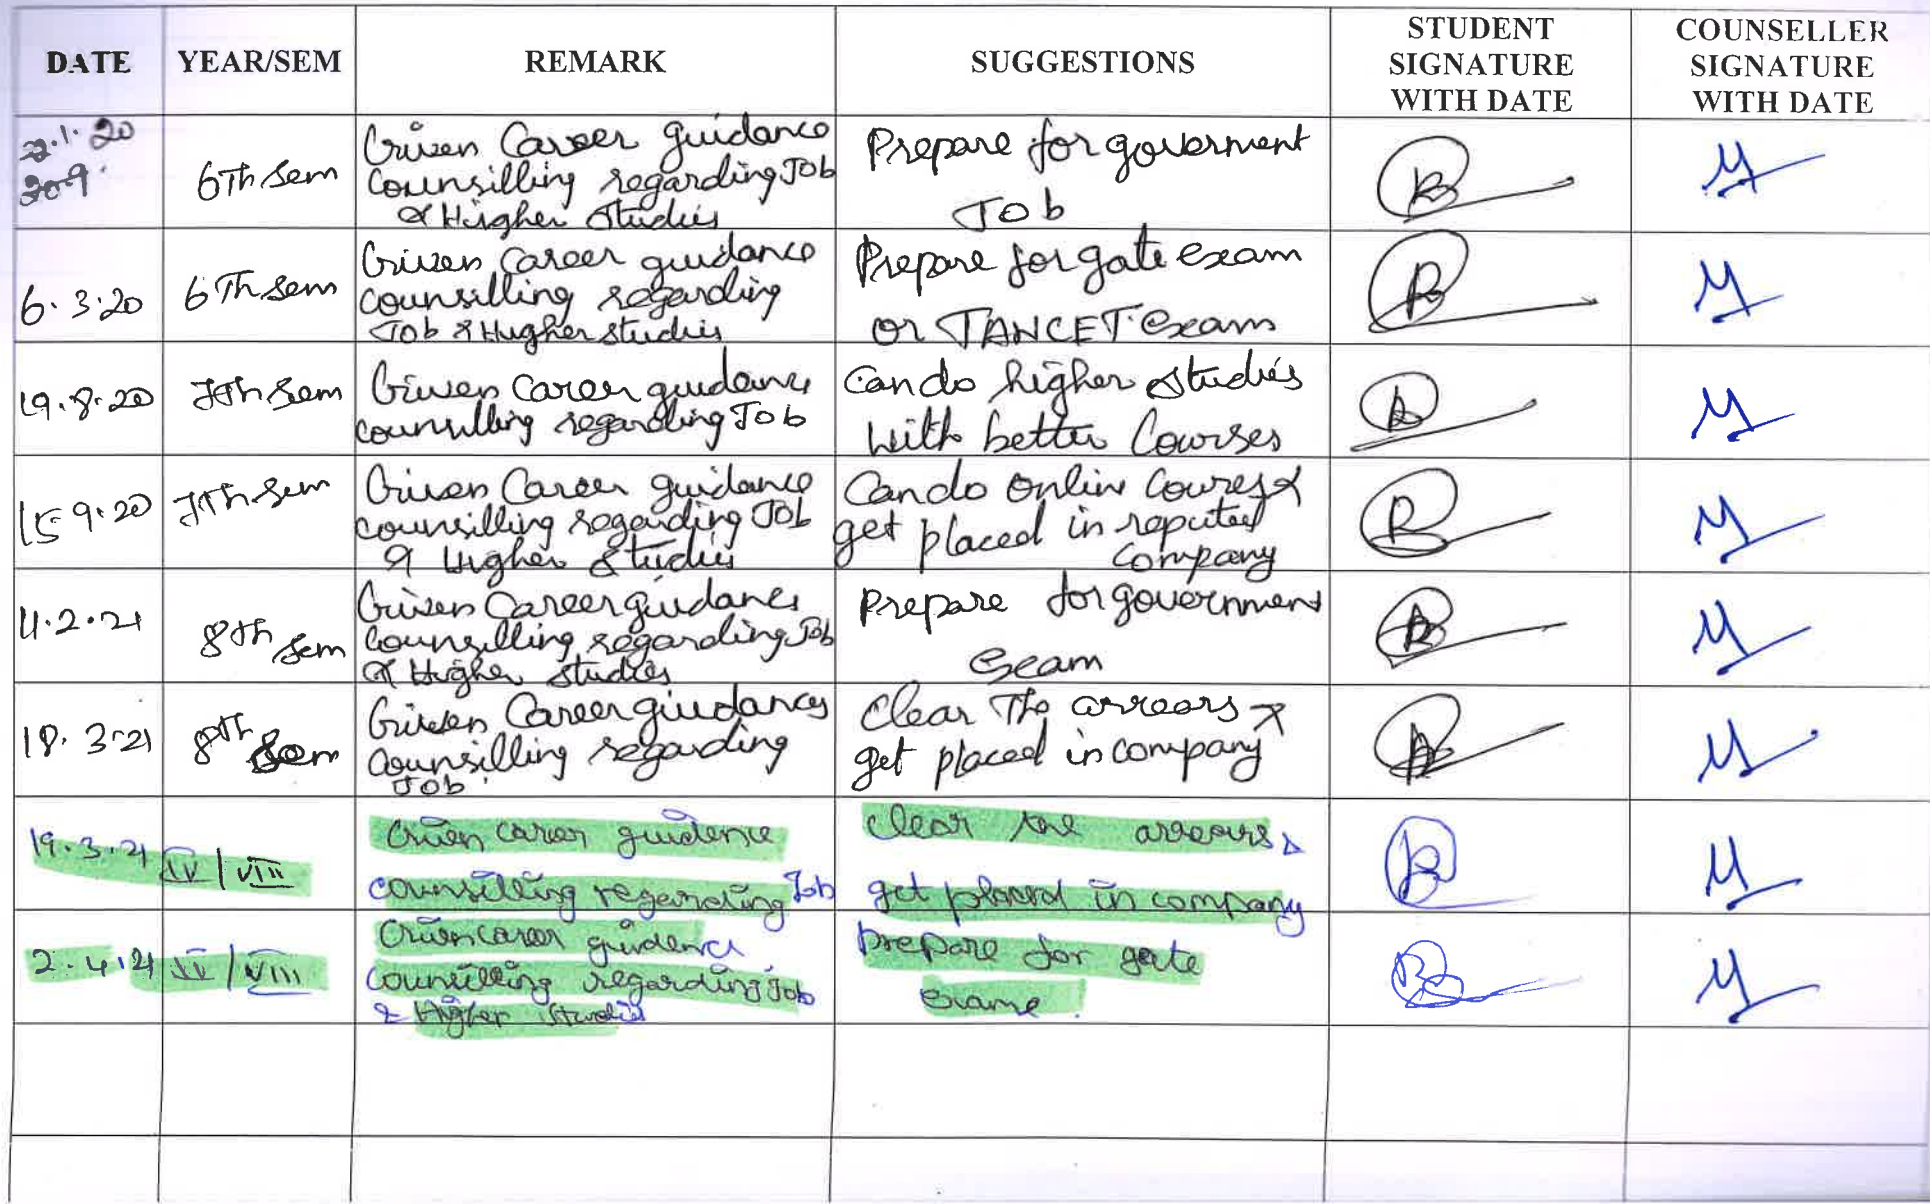 DATE YEAR/SEM REMARK SUGGESTIONS STUDENT SIGNATURE WITH DATE COUNSELLER SIGNATURE WITH DATE
22.1.20
6Th Sem
Given Career guidance
counsilling regarding Job
& Higher Studies
Prepare for goverment
Job
6.3.20
6Th Sem
Given Career guidance
counsilling regarding
Job & Higher studies
Prepare for gate exam
or TANCET exam
19.8.20
7th Sem
Given Career guidance
counsilling regarding Job
Can do higher Studies
with better Courses
15.9.20
7Th Sem
Given Career guidance
counsilling regarding Job
& Higher Studies
Can do online Coures &
get placed in reputed
company
11.2.21
8th Sem
Given Career guidance
counsilling regarding Job
& Higher Studies
Prepare for government
Exam
18.3.21
8th Sem
Given Career guidances
Counsilling regarding
Job.
Clear The arrears &
get placed in company
19.3.21
IV / VIII
Given carrer guidence
counsilling regarding Job
clear the arrears &
get placed in company
2.4.21
IV / VIII
Given carrer guidence
counsilling regarding Job
& Higher Studies
prepare for gate
Exame.